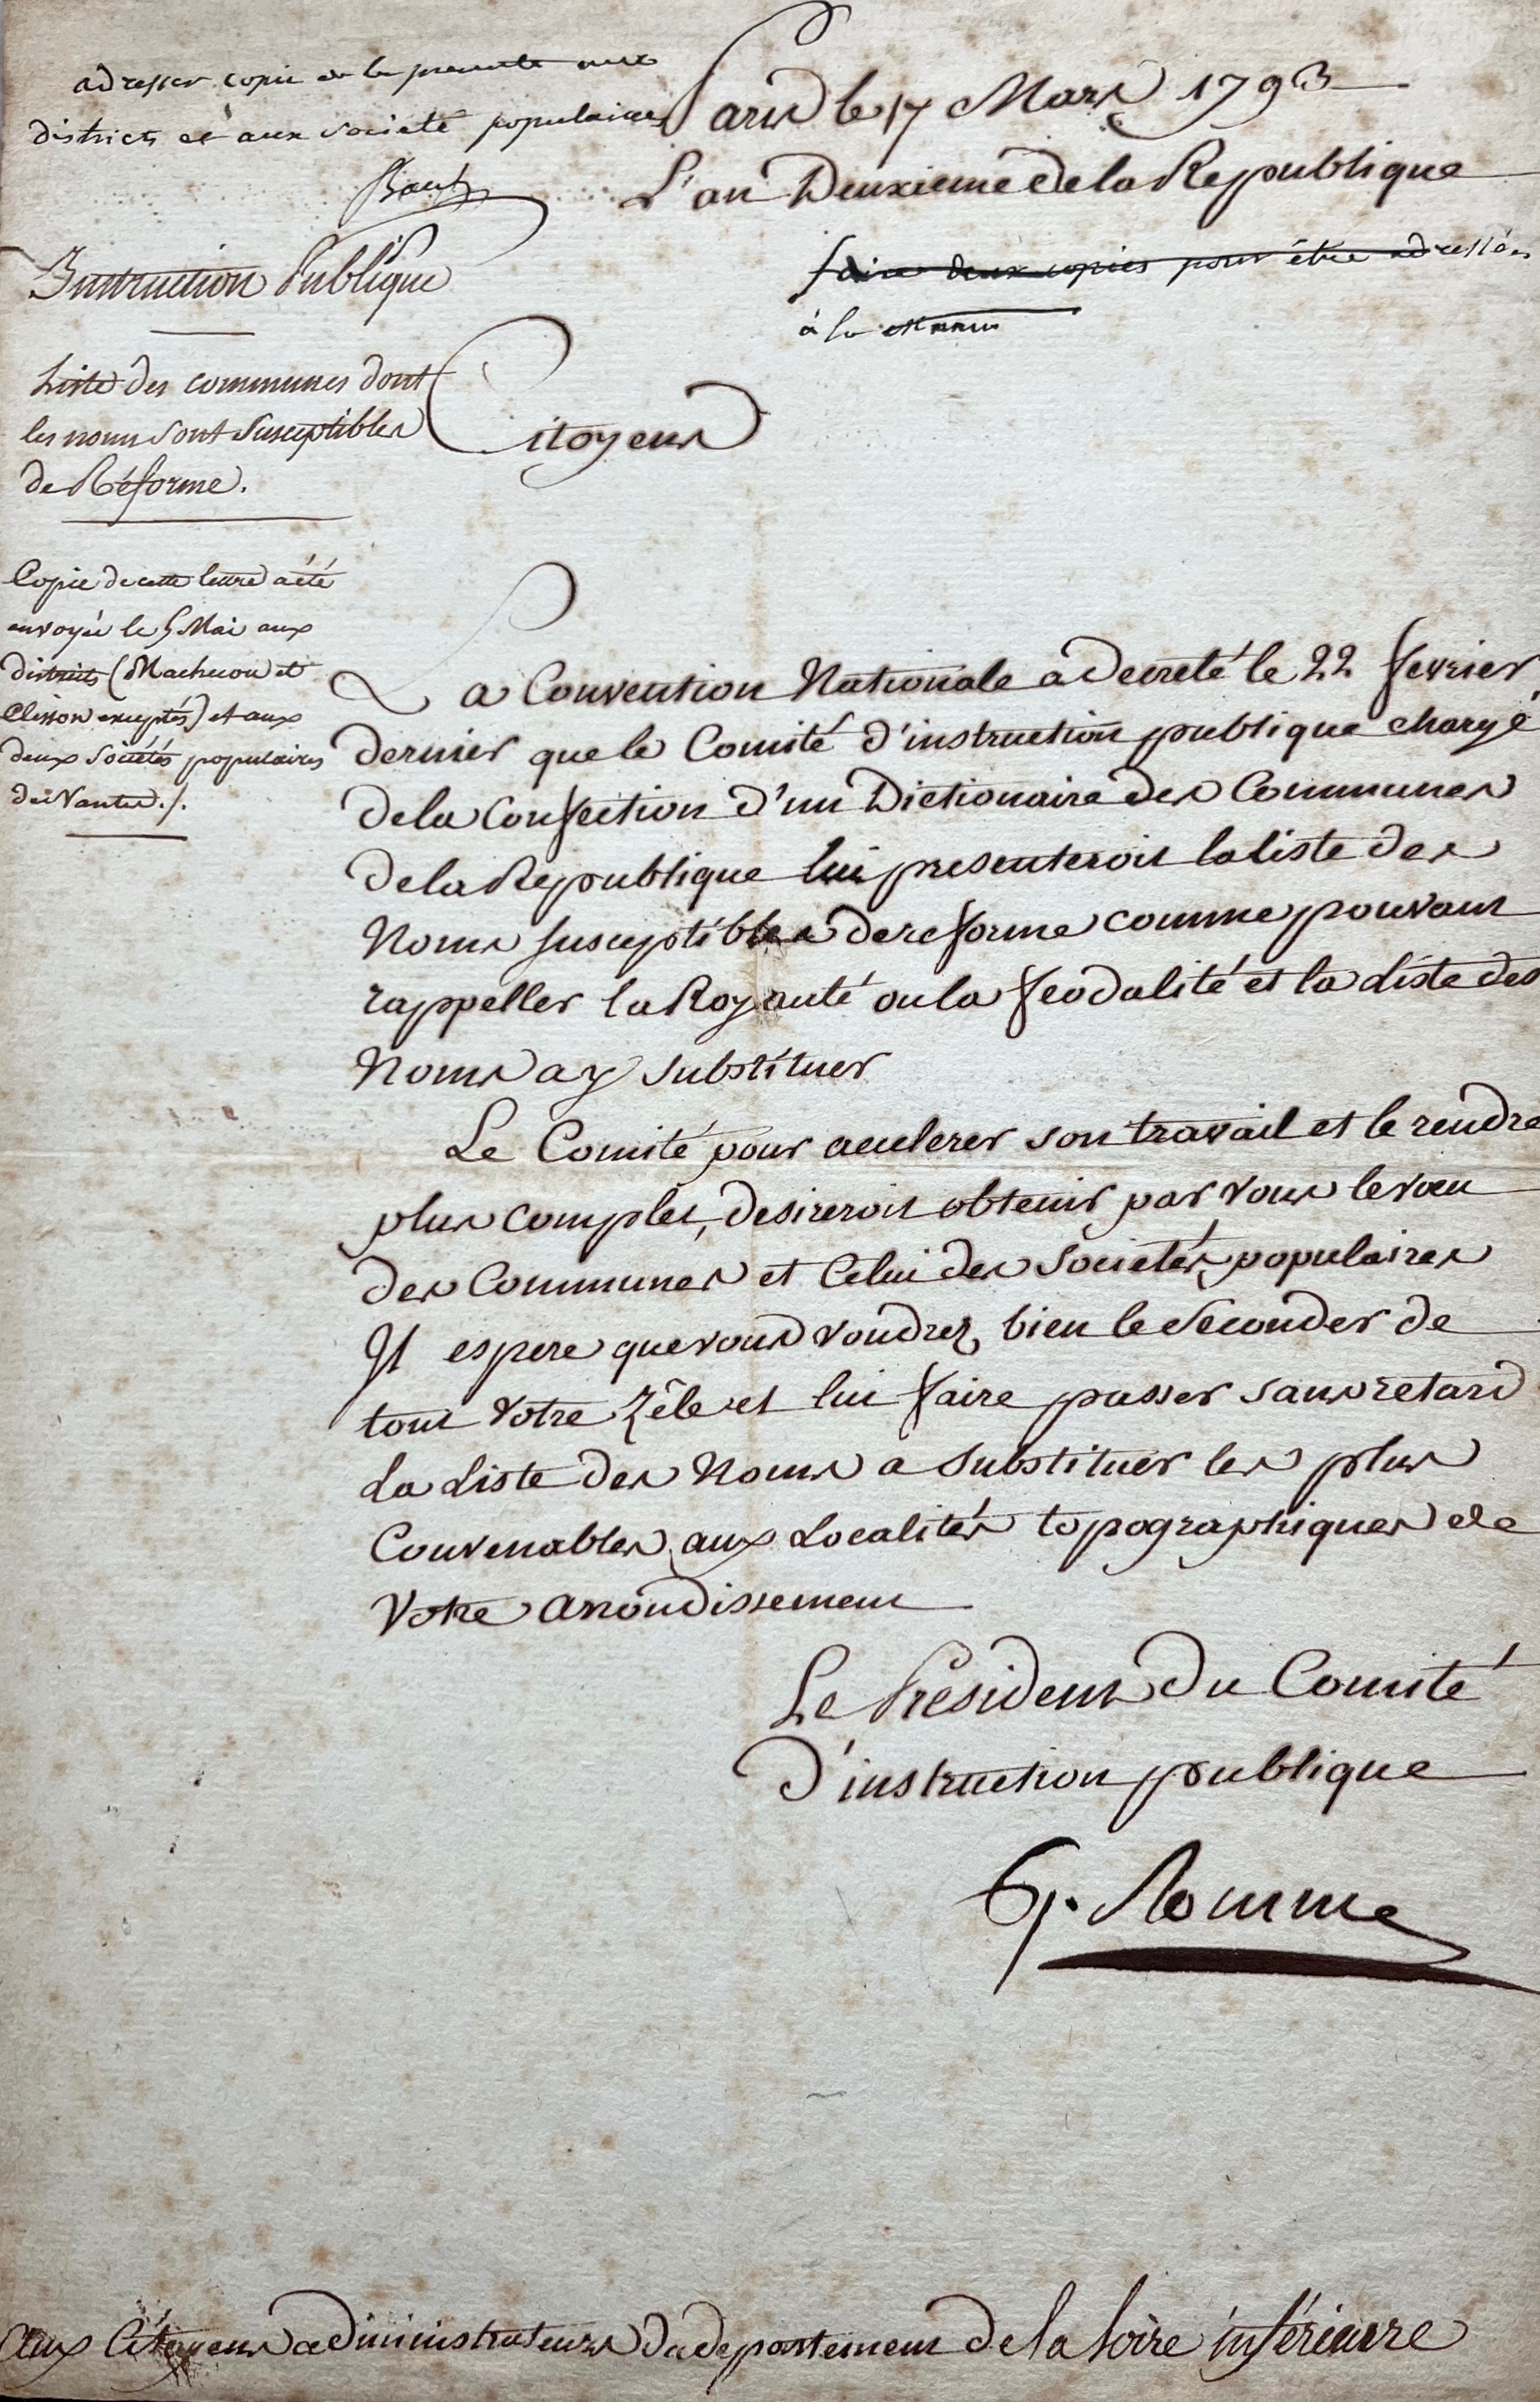 adresser copie de la presente aux
districts et aux societé populaires
Paris le 17 Mars 1793
L'an Deuxieme de la Republique
Instruction Publique
faire deux copies pour être adressées
à la
Liste des communes dont
les noms sont susceptibles
de Réforme.
Citoyens
Copie de cette lettre a été
envoyée le 5 Mai aux
districts (Machecou et
Clisson exceptés) et aux
deux sociétés populaires
de Nantes ./.
La Convention Nationale a decreté le 22 fevrier
dernier que le Comité d'instruction publique chargé
de la confection d'un Dictionaire des Communes
de la Republique lui presenteroit la liste des
Noms susceptibles de reforme comme pouvant
rappeller la Royauté ou la feodalité et la Liste des
Noms a y substituer
Le Comité pour acculerer son travail et le rendre
plus complet, desireroit obtenir par vous le voeu
des Communes et Celui des societés populaires
Il espere que vous voudrez bien le Seconder de
tout votre Zêle et lui faire passer sans retard
La Liste des Noms a substituer les plus
Convenables aux Localités topographiques de
Votre arrondissement
Le President du Comité
d'instruction publique
G. Romme
aux Citoyens administrateurs du departement de la Loire inférieure